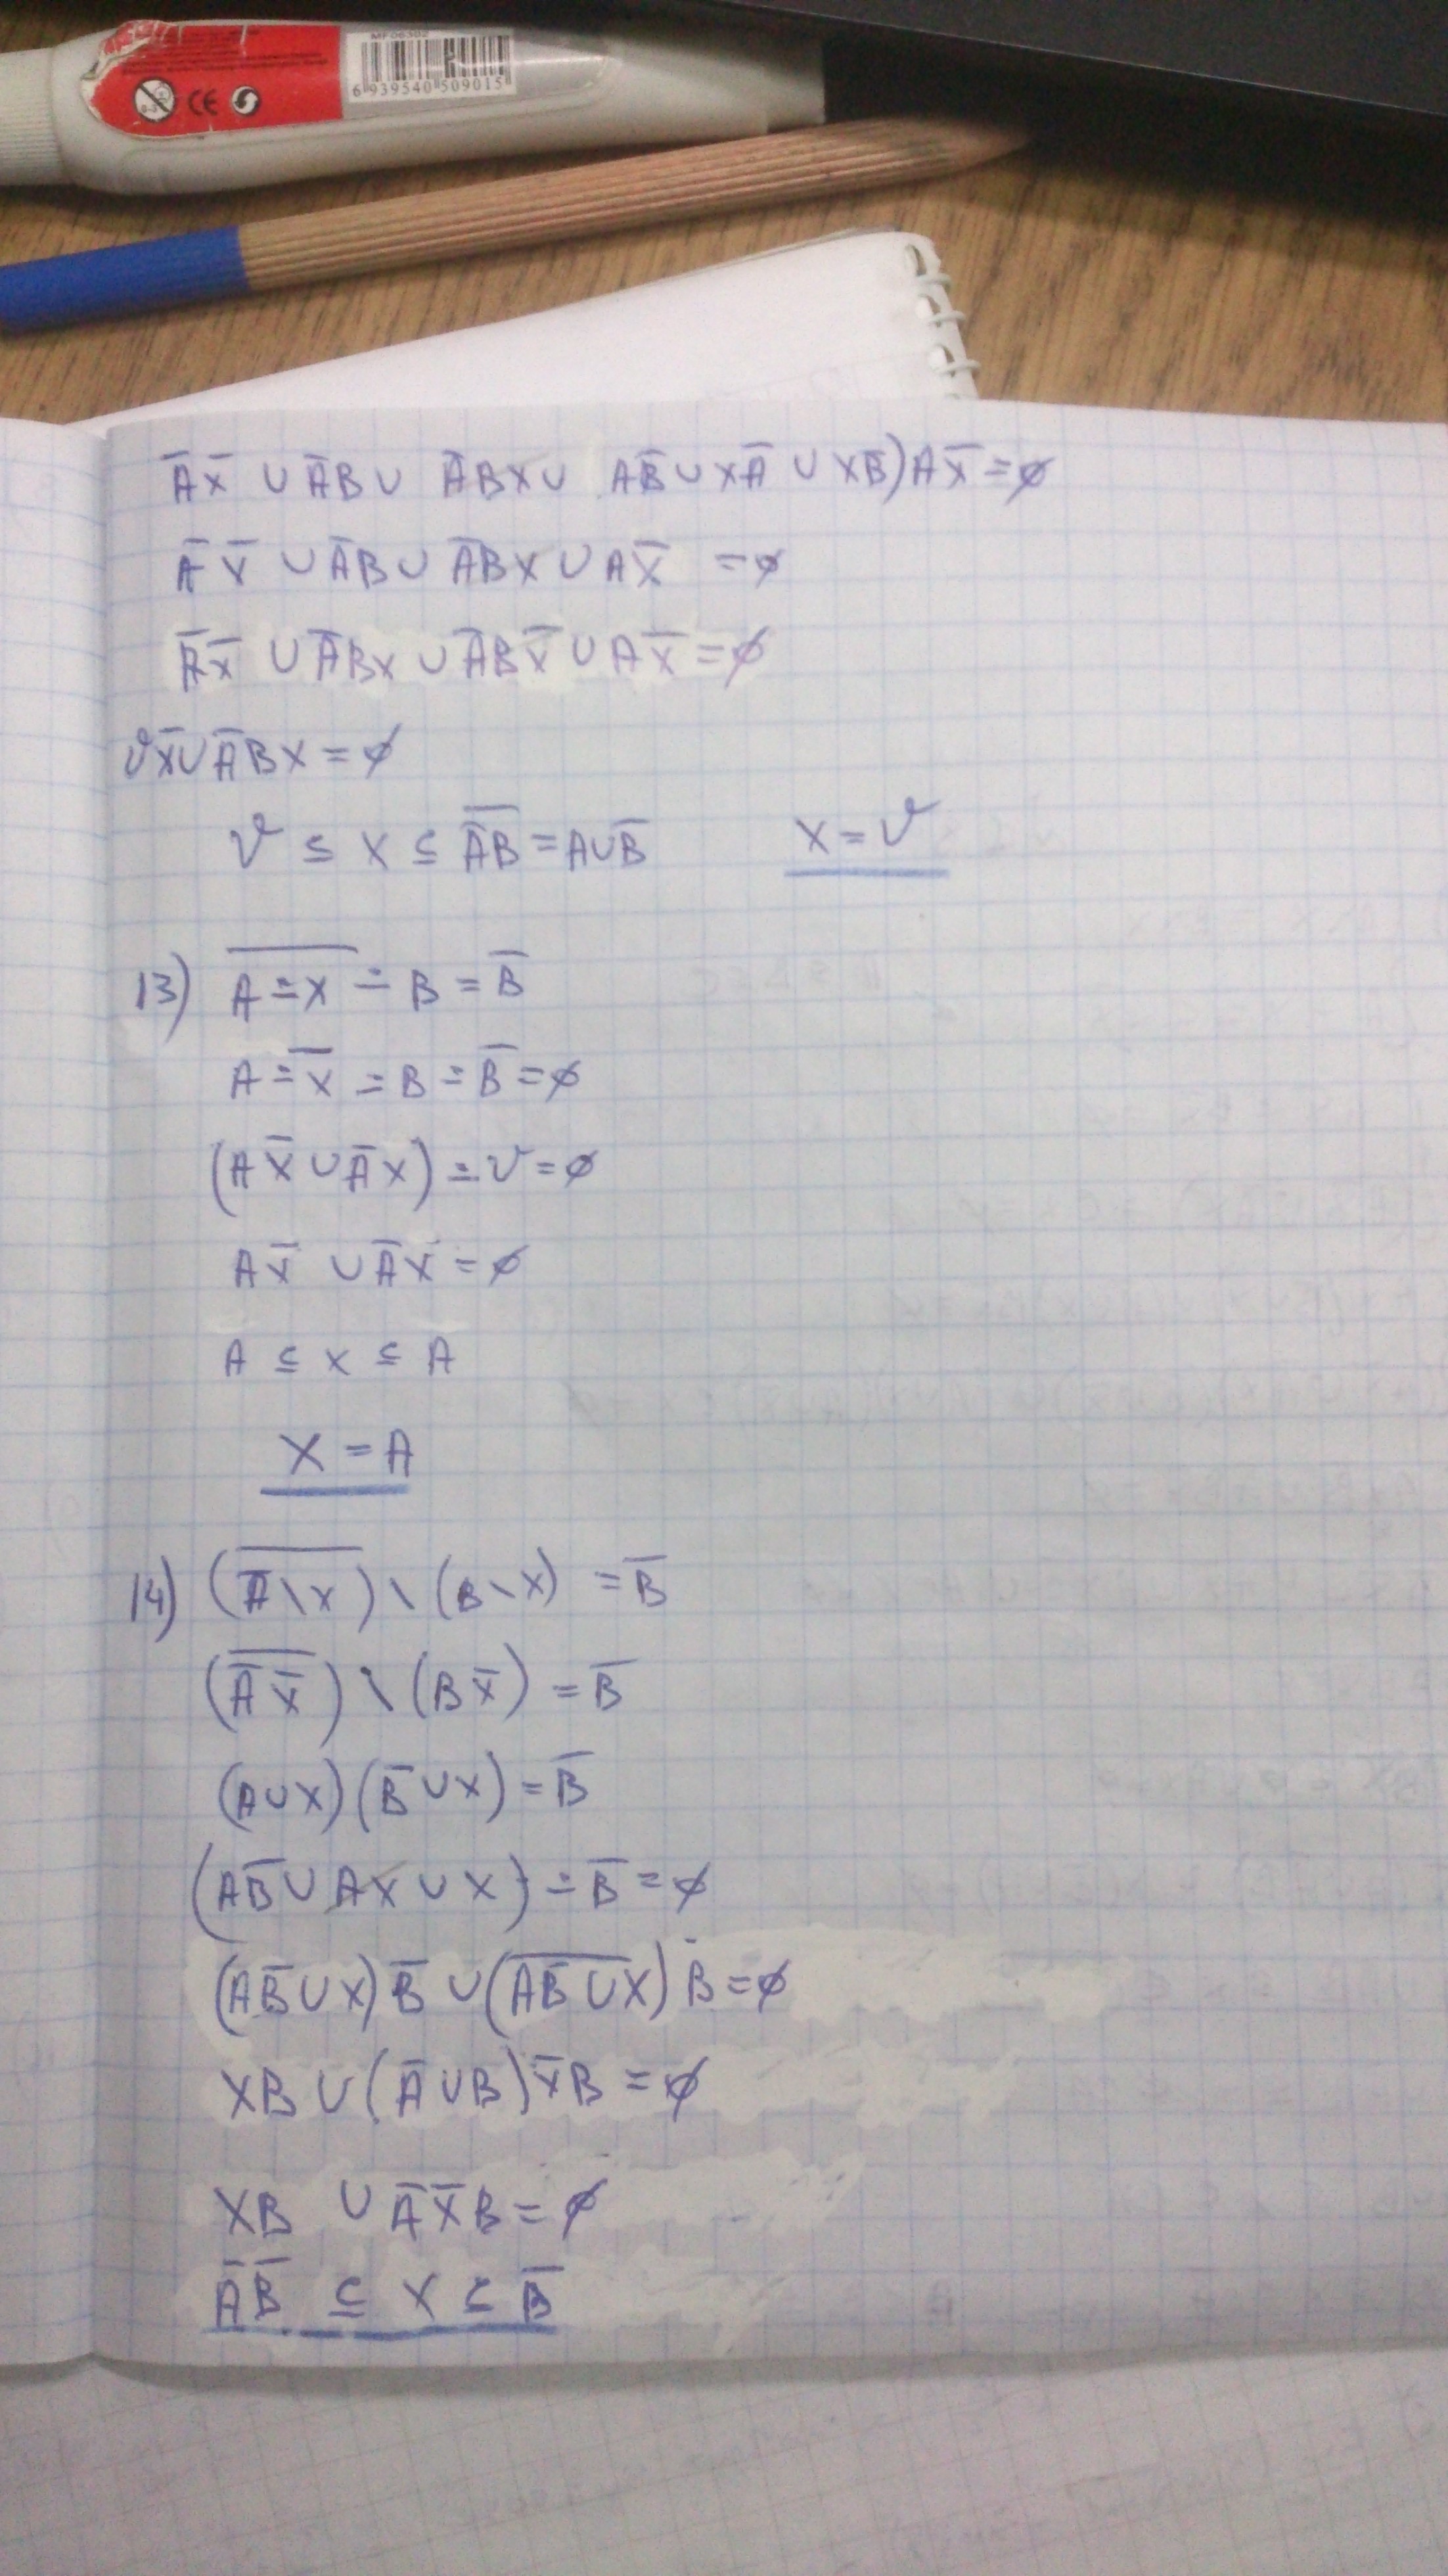 MF06302
6 939540 509015
CE
A̅X̅ ∪ A̅B ∪ A̅BX ∪ AB̅ ∪ XA̅ ∪ XB̅)AX̅ = ∅
A̅X̅ ∪ A̅B ∪ A̅BX ∪ AX̅ = ∅
A̅X̅ ∪ A̅BX ∪ A̅BX̅ ∪ AX̅ = ∅
UX̅ ∪ A̅BX = ∅
U ⊆ X ⊆ \overline{A̅B} = A∪B̅   X = U
13) \overline{A∸X} ∸ B = B̅
A∸X̅ ∸ B ∸ B̅ = ∅
(AX̅ ∪ A̅X) ∸ U = ∅
AX̅ ∪ A̅X = ∅
A ⊆ X ⊆ A
X = A
14) (\overline{A̅\X}) \ (B\X) = B̅
(\overline{A̅X̅}) \ (BX̅) = B̅
(A∪X)(B̅∪X) = B̅
(AB̅ ∪ AX ∪ X) ∸ B̅ = ∅
(AB̅∪X)B̅ ∪ (\overline{AB̅∪X})B = ∅
XB ∪ (A̅∪B)X̅B = ∅
XB ∪ A̅X̅B = ∅
A̅B̅ ⊆ X ⊆ B̅